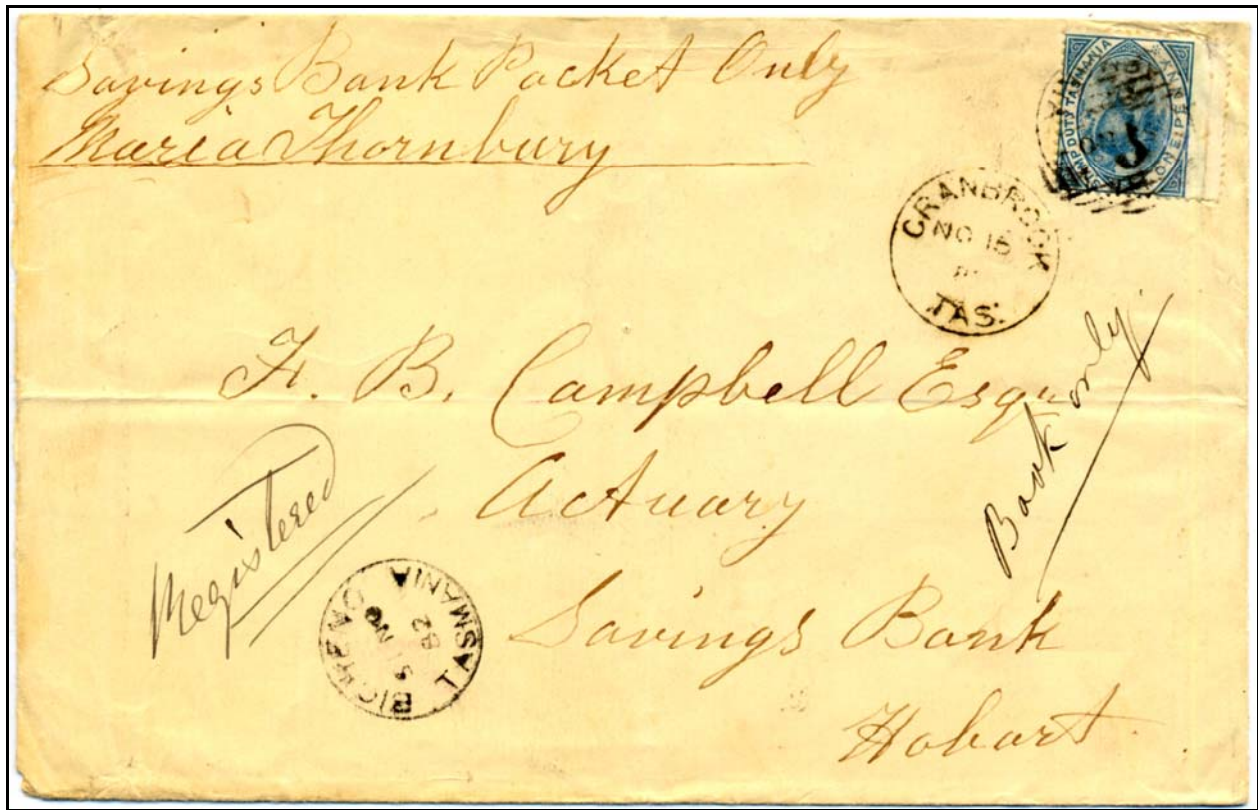 Savings Bank Packet Only
Maria Thornbury
STAMP DUTY TASMANIA
ONE PENNE
CRANBROOK
NO 15
TAS.
F. B. Campbell Esqr
Actuary
Savings Bank
Hobart
Book only
Registered
BICHENO
NO
82
TASMANIA